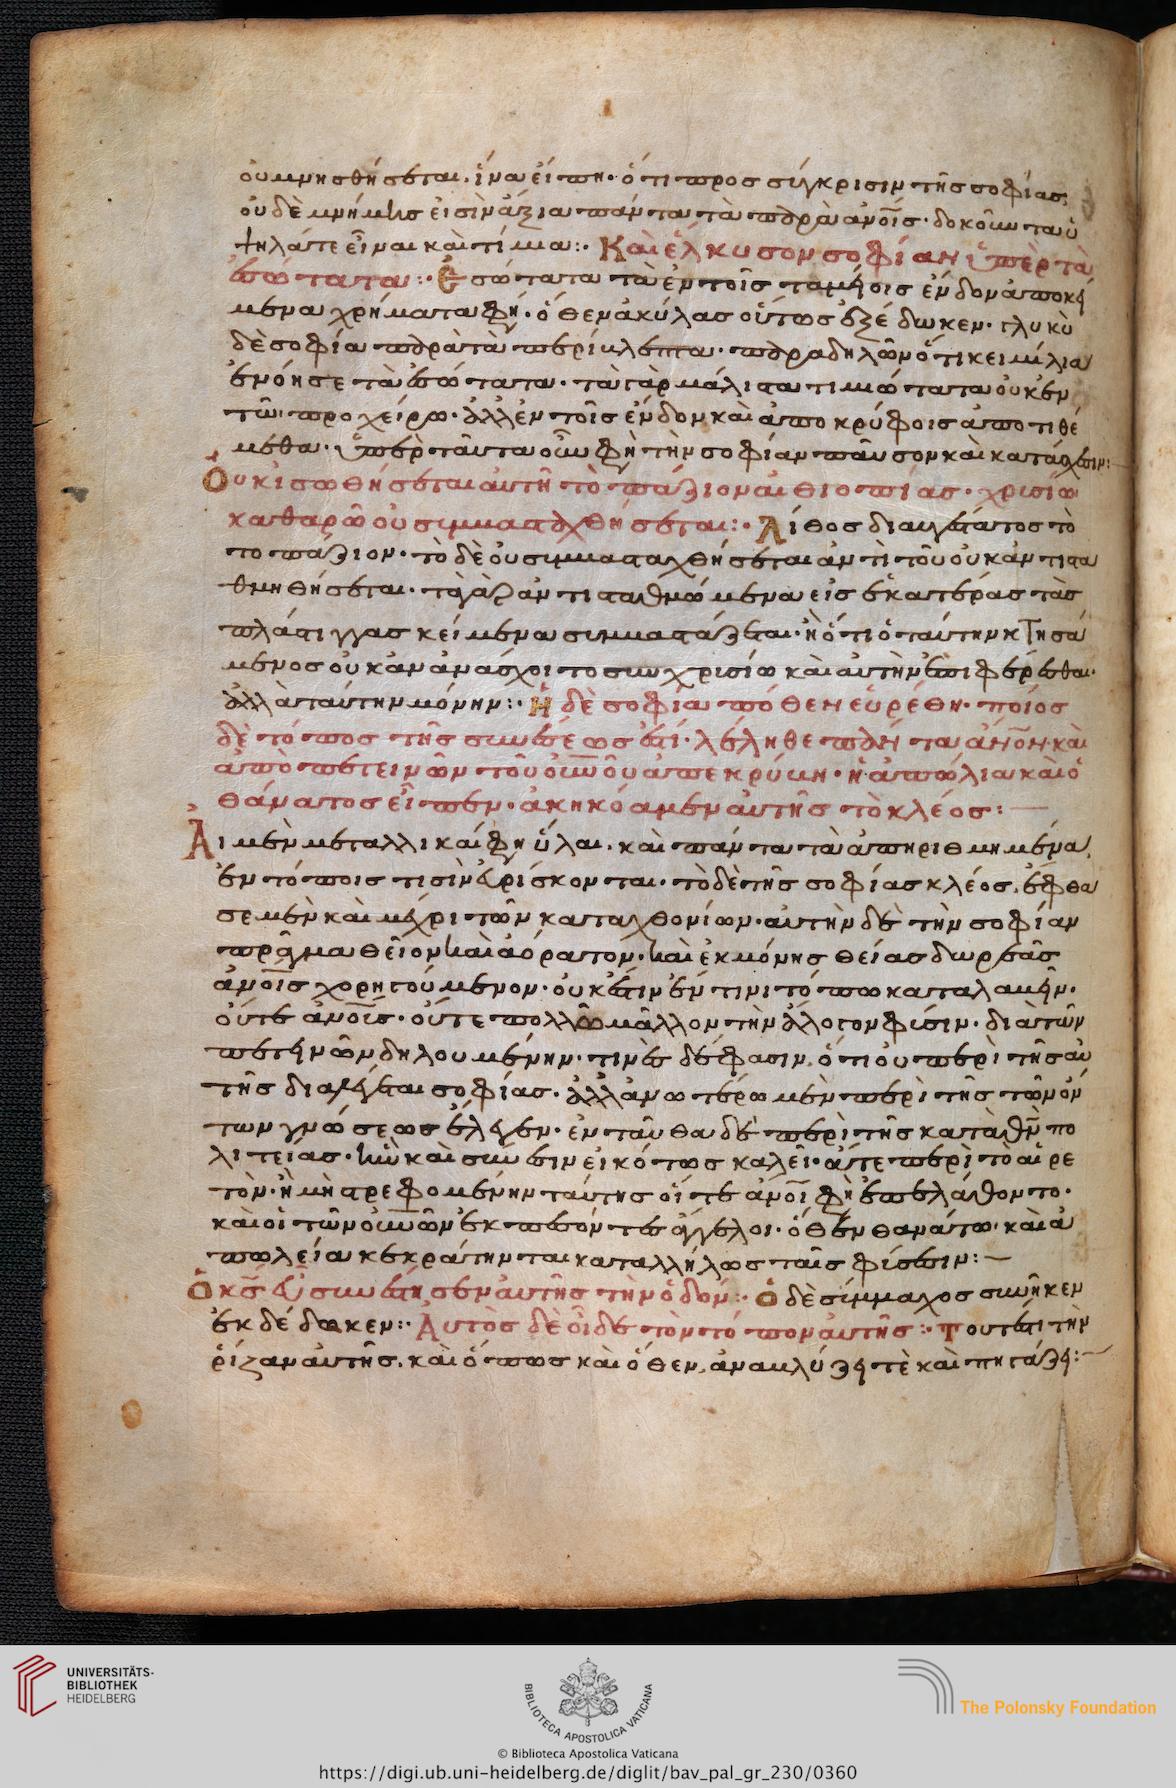 οὐ μνησθήσεται. ἵνα εἴπη· ὅτι προσ σύγκρισιν τῆσ σοφίασ
οὐδὲ μνήμησ εἰσὶν ἄξια πάντα τὰ παρὰ ἀνοῖσ· δοκοῦντα ὑ
ψηλάτε εἶναι καὶ τίμια:· Καὶ ἕλκυσον σοφίαν ὑπὲρ τὰ
ἐσώτατα:· Ἐσώτατα τὰ ἐν τοῖσ ταμείοισ ἔνδον ἀποκεί
μενα χρήματα φη· ὅθεν ἀκύλασ οὕτωσ ἐξέδωκεν· γλυκὺ
δὲ σοφία παρὰ τὰ περίβλεπτα· παραδηλῶν ὅτι κειμίλια
ἐνόησε τὰ ἐσώτατα· τὰ γὰρ μάλιστα τιμιώτατα οὐκ ἐν
τῶ προχείρω· ἀλλ ἐν τοῖσ ἔνδον καὶ ἀποκρύφοισ ἀποτιθέ
μεθα· ὑπὲρ ταῦτα οὖν φη τὴν σοφίαν παῦσον καὶ κατάσχεσιν:
Οὐκ ισωθήσεται αὐτῆ τὸ πάζιον αἰθιοπίασ· χρισίω
καθαρῶ οὐ συμμασταχθήσεται:· Λίθοσ διαυγέστατοσ τὸ
τοπάζιον· τὸ δὲ οὐ συμμασταχθήσεται ἀντὶ τοῦ οὐκ ἀντιστα
θμηθήσεται· τὰ γὰρ ἀντισταθμώμενα εἰσ ἑκατέρασ τὰσ
πλάστιγγασ κείμενα συμμαστάζεται· ἢ ὅτι ὁ ταύτην κτησά
μενοσ οὐκ ἂν ἀνάσχοιτο συν χρισίω καὶ αὐτὴν ἐπιφέρεσθαι·
ἀλλὰ ταύτην μόνην:· Ἡ δὲ σοφία πόθεν εὑρέθη· ποίοσ
δὲ τόποσ τῆσ συνέσεωσ ἐστί· λέληθε πάντα ἄνον· καὶ
ἀπὸ πετεινῶν τοῦ οὐνοῦ ἀπεκρύβη· ἡ ἀπώλια καὶ ὁ
θάνατοσ εἶπεν· ἀκηκόαμεν αὐτῆσ τὸ κλέοσ:
Αἱ μὲν μεταλλικαί φη ὗλαι. καὶ πάντα τὰ ἀπηριθμημένα
ἐν τόποισ τισὶν εὑρίσκονται· τὸ δὲ τῆσ σοφίασ κλέοσ, ἔφθα
σε μὲν καὶ μέχρι τῶν καταχθονίων· αὐτὴν δὲ τὴν σοφίαν
πρᾶγμα θεῖον καὶ ἀόρατον· καὶ ἐκ μόνησ θείασ δωρεᾶσ
ἀνοισ χορηγούμενον· οὐκ ἔστιν ἔν τινι τόπω καταλαβεῖν·
οὔτε ἀνοισ· οὔτε πολλῶ μᾶλλον τὴν ἄλογον φύσιν· διὰ τῶν
πετεινῶν δηλουμένην· τινὲσ δέ φασιν, ὅτι οὐ περὶ τῆσ αὐ
τῆσ διαλέγεται σοφίασ· ἀλλ ἀνωτέρω μὲν περὶ τῆσ τῶν ὄν
των γνώσεωσ ἔλεγεν· ἐνταῦθα δὲ περὶ τῆσ κατὰ θν πο
λιτείασ· ἣν καὶ σύνεσιν εἰκότωσ καλεῖ· ἅτε περὶ τὸ αἱρε
τὸν· ἢ μὴ στρεφομένην ταύτησ οἵ τε ἄνοί φη ἐπελάθοντο·
καὶ οἱ τῶν οὐνῶν ἐκπεσόντεσ ἄγγελοι· ὅθεν θανάτω καὶ ἀ
πωλεία κεκράτηνται καταλλήλωσ ταῖσ φύσεσιν:
Ὁ κσ εὖ συνέστησεν αὐτῆσ τὴν ὁδόν:· Ὁ δὲ σύμμαχοσ συνῆκεν
ἐκδέδωκεν:· Αὐτὸσ δὲ οἶδε τὸν τόπον αὐτῆσ:· Τουτέστι τὴν
ῥίζαν αὐτῆσ, καὶ ὅπωσ καὶ ὅθεν, ἀναβλύζει τὲ καὶ πηγάζει:
UNIVERSITÄTS-
BIBLIOTHEK
HEIDELBERG
BIBLIOTECA APOSTOLICA VATICANA
The Polonsky Foundation
© Biblioteca Apostolica Vaticana
https://digi.ub.uni-heidelberg.de/diglit/bav_pal_gr_230/0360